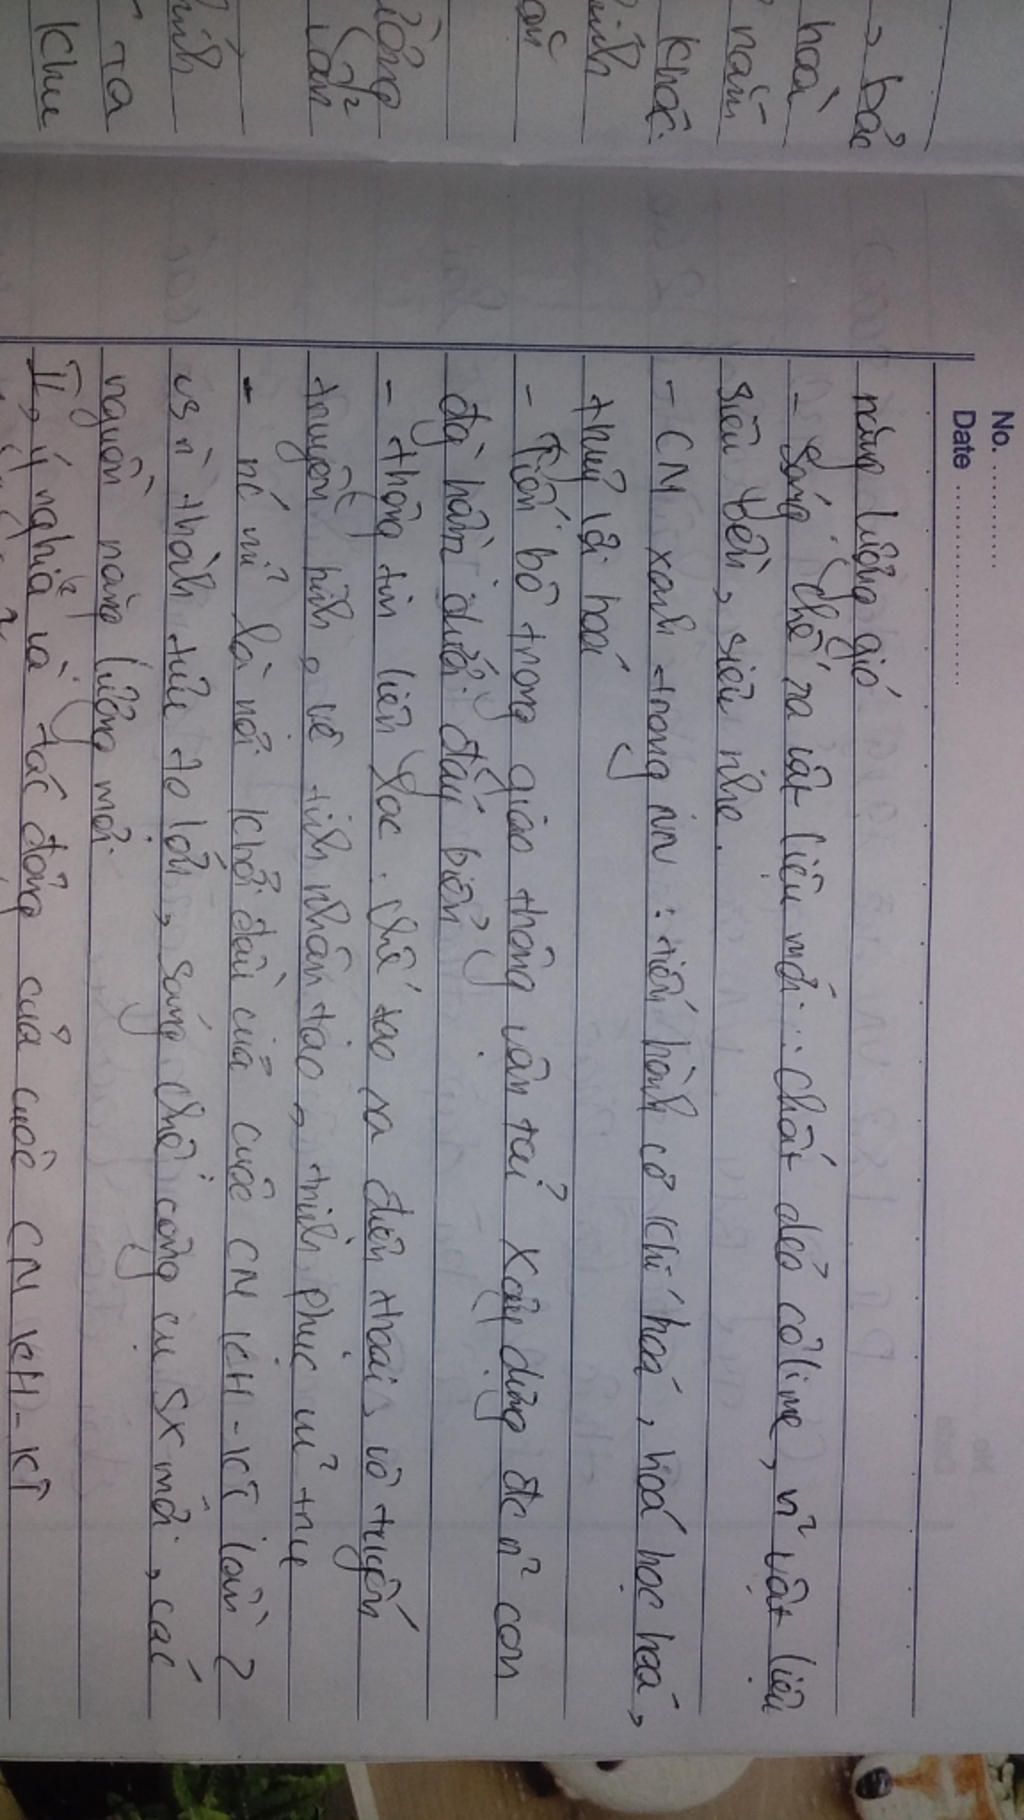 No. ..........
Date ....................
năng lượng gió
- Sáng chế ra vật liệu mới : chất dẻo côlime, n² vật liệu
siêu bền, siêu nhẹ.
- CM xanh trong nn : tiến hành cơ khí hoá, hoá học hoá,
thuỷ lợi hoá
- Tiến bộ trong giao thông vận tải xây dựng đc n² con
đg hầm dưới đáy biển
- thông tin liên lạc. chế tạo ra điện thoại, vô tuyến
truyền hình, vệ tinh nhân tạo, chinh phục vũ trụ
- nc mĩ là nơi khởi đầu của cuộc CM KH-KT lần 2
vs n² thành tựu to lớn, sáng chế công cụ SX mới, các
nguồn năng lượng mới.
II, ý nghĩa và tác động của cuộc CM KH-KT
hoà
năm
khác.
hình
lần
ta
khu